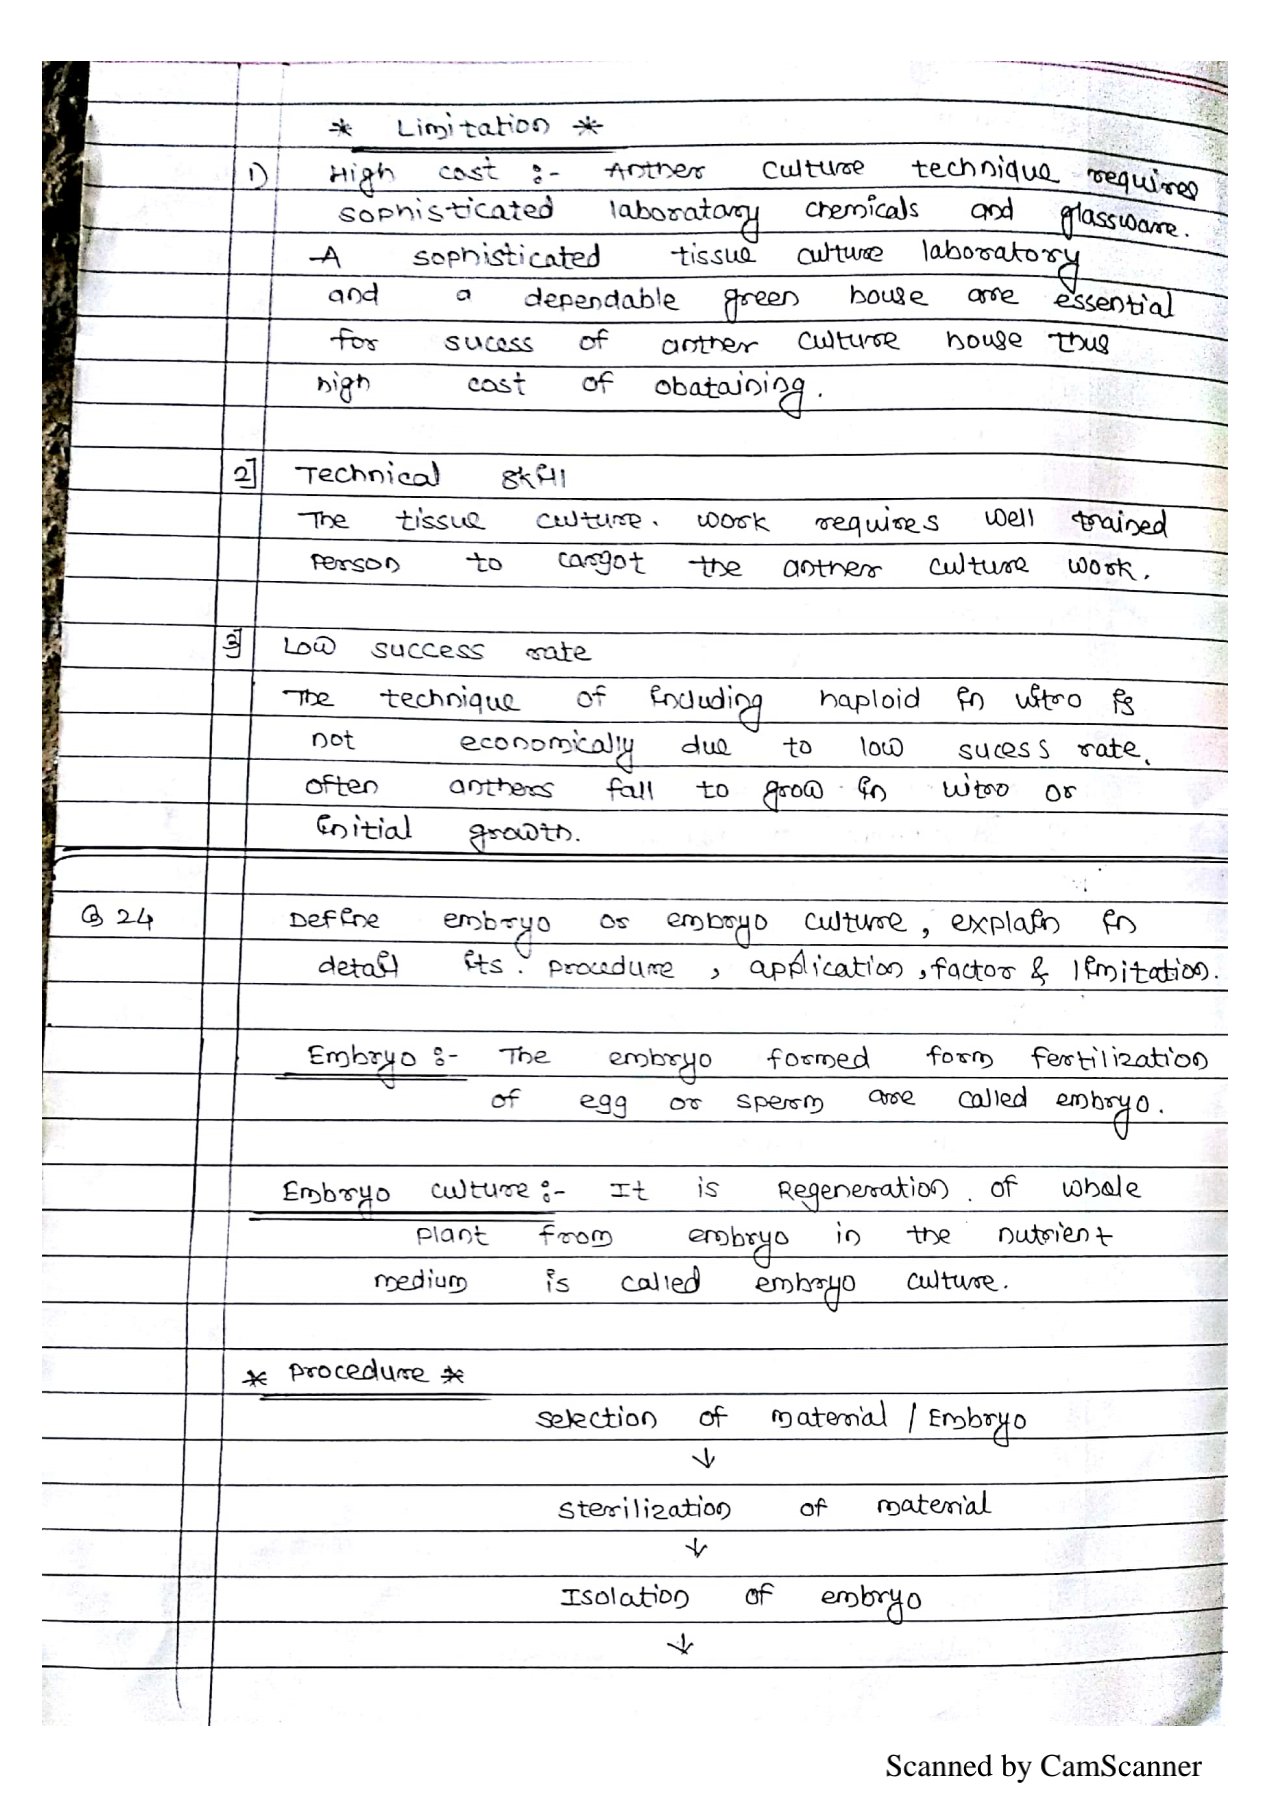 * Limitation *
1) High cost :- Anther culture technique requires
sophisticated laboratary chemicals and glassware.
A sophisticated tissue culture laboratory
and a dependable green house are essential
for sucess of anther culture house thus
high cost of obataining.
2] Technical skill
The tissue culture. work requires well trained
Person to the anther culture work.
3] Low success rate
The technique of including haploid in vitro is
not economically due to low sucess rate.
often anthers fall to grow in vitro or
initial growth.
Q 24 Define embryo or embryo culture, explain in
detail its. procedure, application, factor & limitation.
Embryo :- The embryo formed form fertilization
of egg or sperm are called embryo.
Embryo culture :- It is Regeneration. of whole
plant from embryo in the nutrient
medium is called embryo culture.
* Procedure *
Selection of material / Embryo
↓
Sterilization of material
↓
Isolation of embryo
↓
Scanned by CamScanner